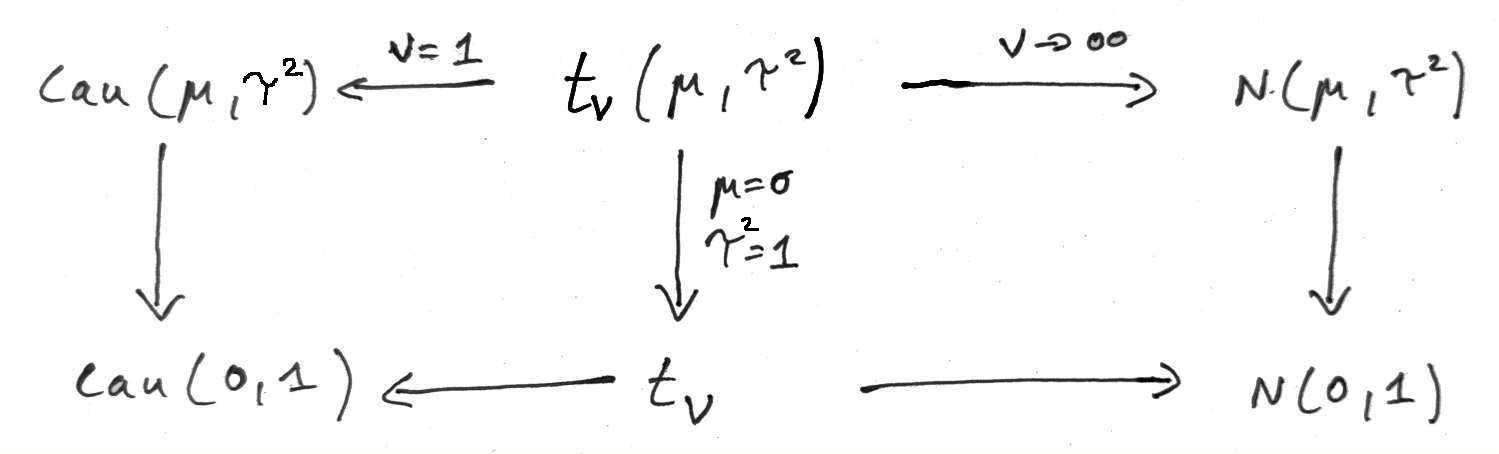 ν=1 ν→∞
Cau(μ,τ²) ← t_ν(μ,τ²) → N(μ,τ²)
μ=0
τ²=1
Cau(0,1) ← t_ν → N(0,1)